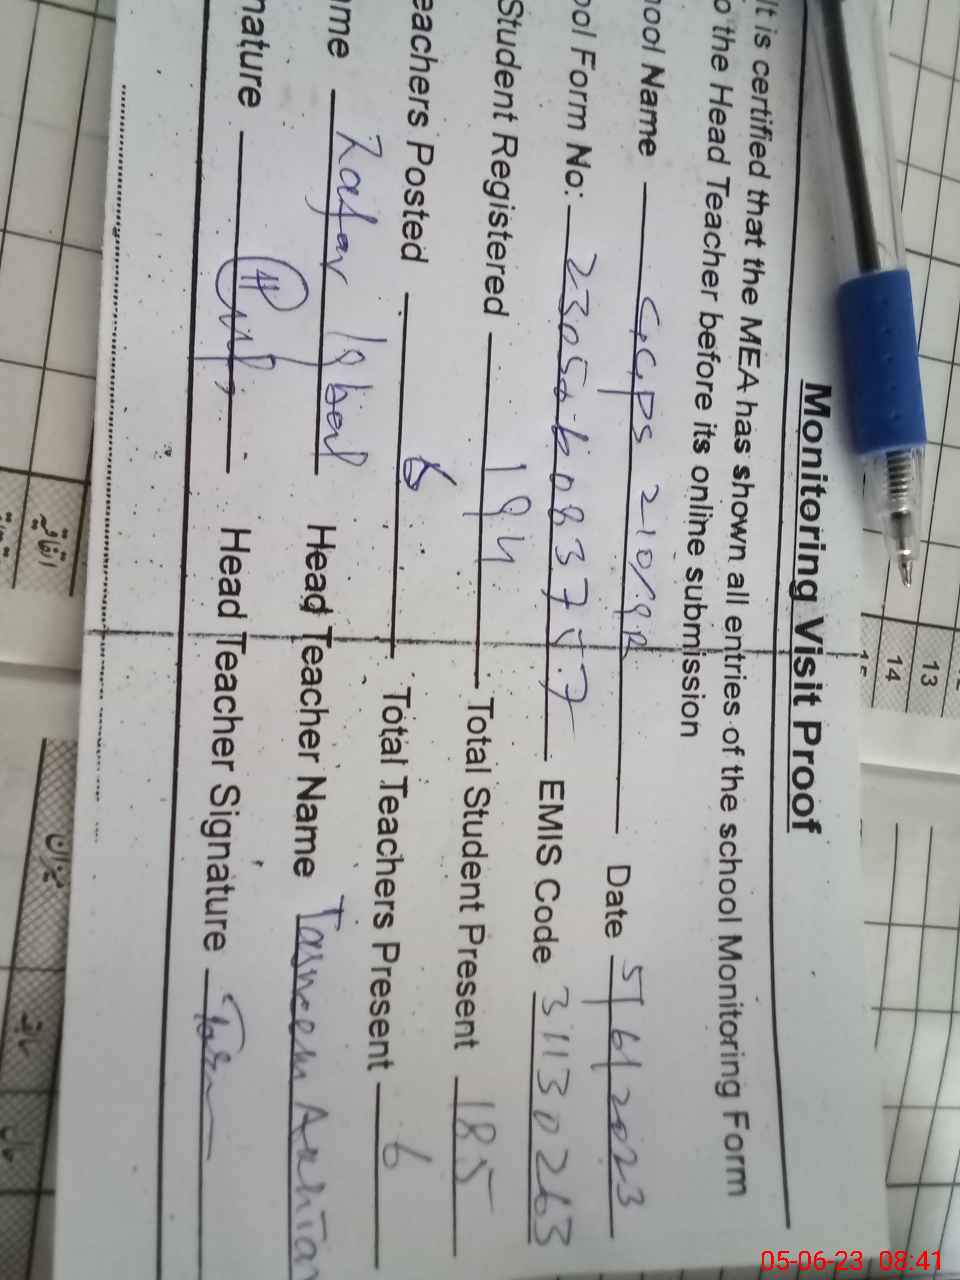 Monitoring Visit Proof
It is certified that the MEA has shown all entries of the school Monitoring Form
o the Head Teacher before its online submission
hool Name GGPS 210/9R Date 5/6/2023
ool Form No: EMIS Code 31130263
Student Registered 194 Total Student Present 185
eachers Posted 6 Total Teachers Present 6
ame Zafar Iqbal Head Teacher Name
nature Head Teacher Signature
13
14
15
05-06-23 08:41